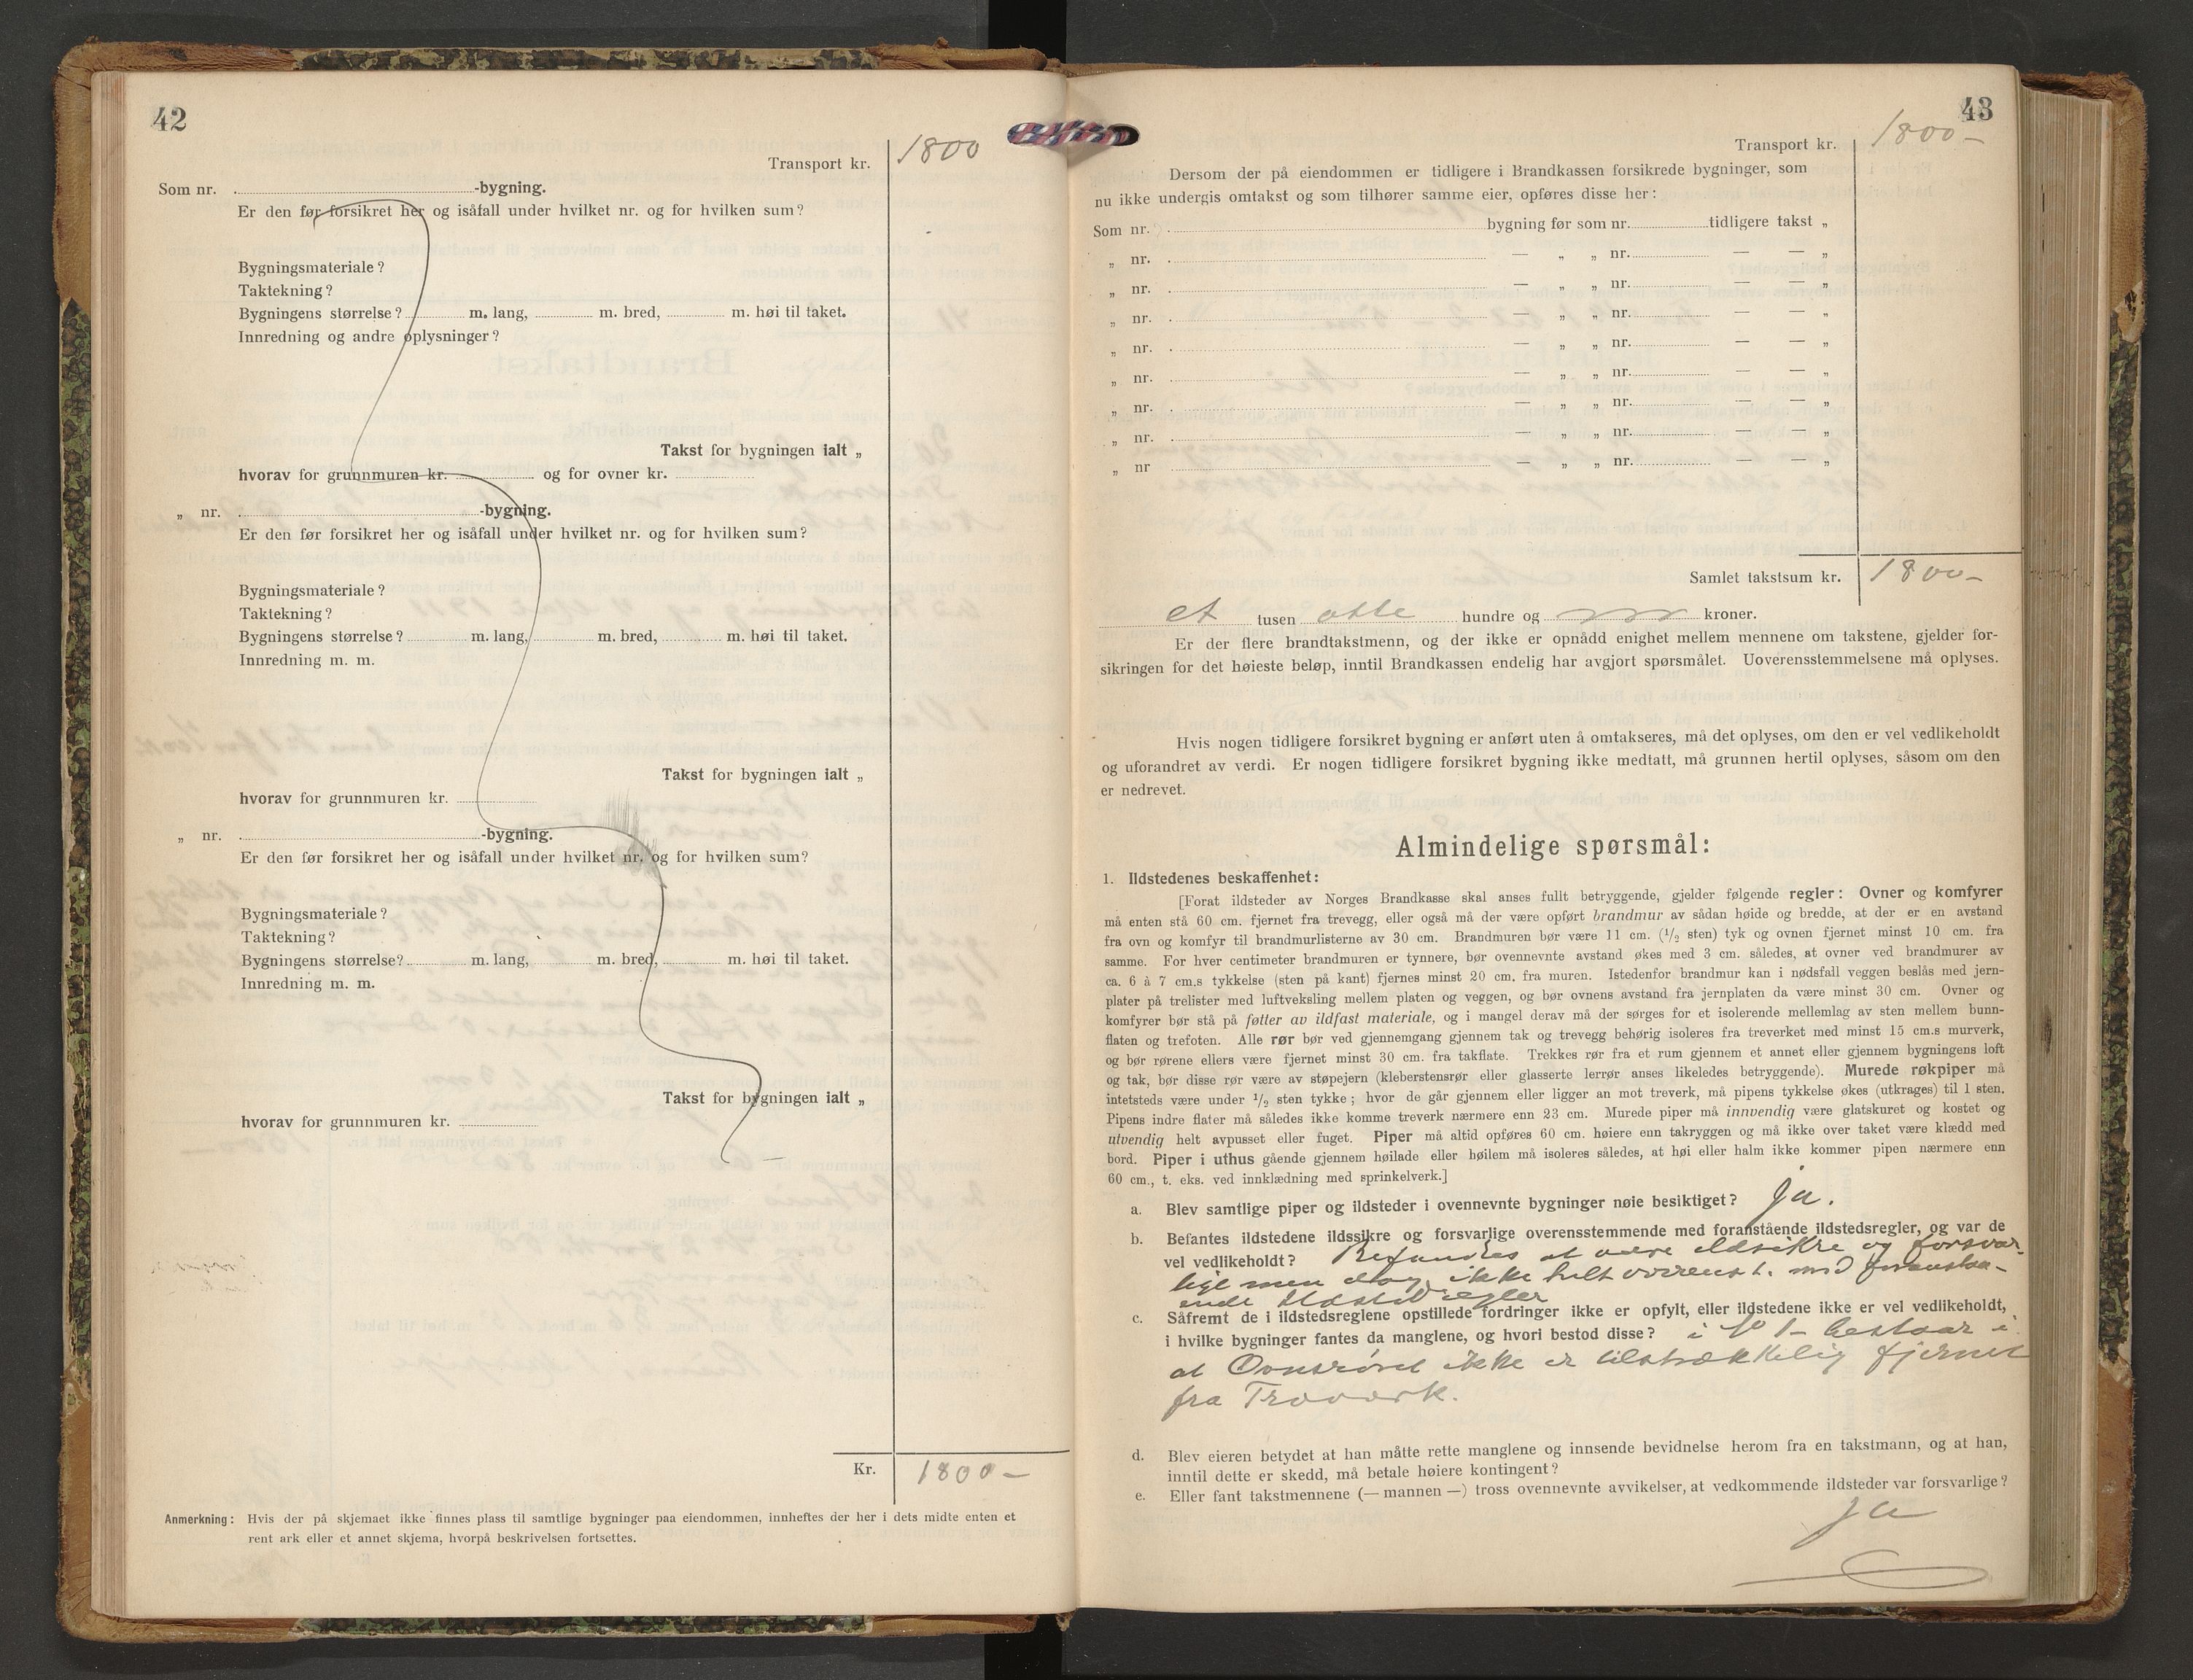 42
Transport kr. 1800
Som nr. -bygning.
Er den før forsikret her og isåfall under hvilket nr. og for hvilken sum?
Bygningsmateriale?
Taktekning?
Bygningens størrelse? m. lang, m. bred, m. høi til taket.
Innredning og andre oplysninger?
Takst for bygningen ialt „
hvorav for grunnmuren kr. og for ovner kr.
„ nr. -bygning.
Er den før forsikret her og isåfall under hvilket nr. og for hvilken sum?
Bygningsmateriale?
Taktekning?
Bygningens størrelse? m. lang, m. bred, m. høi til taket.
Innredning m. m.
Takst for bygningen ialt „
hvorav for grunnmuren kr.
„ nr. -bygning.
Er den før forsikret her og isåfall under hvilket nr. og for hvilken sum?
Bygningsmateriale?
Taktekning?
Bygningens størrelse? m. lang, m. bred, m. høi til taket.
Innredning m. m.
Takst for bygningen ialt „
hvorav for grunnmuren kr.
Kr. 1800 —
Anmerkning: Hvis der på skjemaet ikke finnes plass til samtlige bygninger paa eiendommen, innheftes der her i dets midte enten et
rent ark eller et annet skjema, hvorpå beskrivelsen fortsettes.
43
Transport kr. 1800 —
Dersom der på eiendommen er tidligere i Brandkassen forsikrede bygninger, som
nu ikke undergis omtakst og som tilhører samme eier, opføres disse her:
Som nr. bygning før som nr. tidligere takst „
„ nr. — „ „ nr. — — „
„ nr. — „ „ nr. — — „
„ nr. — „ „ nr. — — „
„ nr. — „ „ nr. — — „
„ nr. — „ „ nr. — — „
„ nr. — „ „ nr. — — „
„ nr. — „ „ nr. — — „
„ nr — „ „ nr. — — „
Samlet takstsum kr. 1800 —
et tusen otte hundre og kroner.
Er der flere brandtakstmenn, og der ikke er opnådd enighet mellem mennene om takstene, gjelder for-
sikringen for det høieste beløp, inntil Brandkassen endelig har avgjort spørsmålet. Uoverensstemmelsene må oplyses.
Hvis nogen tidligere forsikret bygning er anført uten å omtakseres, må det oplyses, om den er vel vedlikeholdt
og uforandret av verdi. Er nogen tidligere forsikret bygning ikke medtatt, må grunnen hertil oplyses, såsom om den
er nedrevet.
Almindelige spørsmål:
1. Ildstedenes beskaffenhet:
[Forat ildsteder av Norges Brandkasse skal anses fullt betryggende, gjelder følgende regler: Ovner og komfyrer
må enten stå 60 cm. fjernet fra trevegg, eller også må der være opført brandmur av sådan høide og bredde, at der er en avstand
fra ovn og komfyr til brandmurlisterne av 30 cm. Brandmuren bør være 11 cm. (1/2 sten) tyk og ovnen fjernet minst 10 cm. fra
samme. For hver centimeter brandmuren er tynnere, bør ovennevnte avstand økes med 3 cm. således, at ovner ved brandmurer av
ca. 6 à 7 cm.s tykkelse (sten på kant) fjernes minst 20 cm. fra muren. Istedenfor brandmur kan i nødsfall veggen beslås med jern-
plater på trelister med luftveksling mellem platen og veggen, og bør ovnens avstand fra jernplaten da være minst 30 cm. Ovner og
komfyrer bør stå på føtter av ildfast materiale, og i mangel derav må der sørges for et isolerende mellemlag av sten mellem bunn-
flaten og trefoten. Alle rør bør ved gjennemgang gjennem tak og trevegg behørig isoleres fra treverket med minst 15 cm.s murverk,
og bør rørene ellers være fjernet minst 30 cm. fra takflate. Trekkes rør fra et rum gjennem et annet eller gjennem bygningens loft
og tak, bør disse rør være av støpejern (kleberstensrør eller glasserte lerrør anses likeledes betryggende). Murede røkpiper må
intetsteds være under 1/2 sten tykke; hvor de går gjennem eller ligger an mot treverk, må pipens tykkelse økes (utkrages) til 1 sten.
Pipens indre flater må således ikke komme treverk nærmere enn 23 cm. Murede piper må innvendig være glatskuret og kostet og
utvendig helt avpusset eller fuget. Piper må altid opføres 60 cm. høiere enn takryggen og må ikke over taket være klædd med
bord. Piper i uthus gående gjennem høilade eller høilem må isoleres således, at høi eller halm ikke kommer pipen nærmere enn
60 cm., t. eks. ved innklædning med sprinkelverk.]
a. Blev samtlige piper og ildsteder i ovennevnte bygninger nøie besiktiget? Ja.
b. Befantes ildstedene ildssikre og forsvarlige overensstemmende med foranstående ildstedsregler, og var de
vel vedlikeholdt? Befandtes at være ildsikre og forsvar-
lige men dog ikke helt overenst. med foranstaa-
ende Ildstedregler
c. Såfremt de i ildstedsreglene opstillede fordringer ikke er opfylt, eller ildstedene ikke er vel vedlikeholdt,
i hvilke bygninger fantes da manglene, og hvori bestod disse? i No 1 — bestaar i
at Ovnsrøret ikke er tilstrækkelig fjernet
fra Træværk.
d. Blev eieren betydet at han måtte rette manglene og innsende bevidnelse herom fra en takstmann, og at han,
inntil dette er skedd, må betale høiere kontingent?
e. Eller fant takstmennene (— mannen —) tross ovennevnte avvikelser, at vedkommende ildsteder var forsvarlige?
Ja